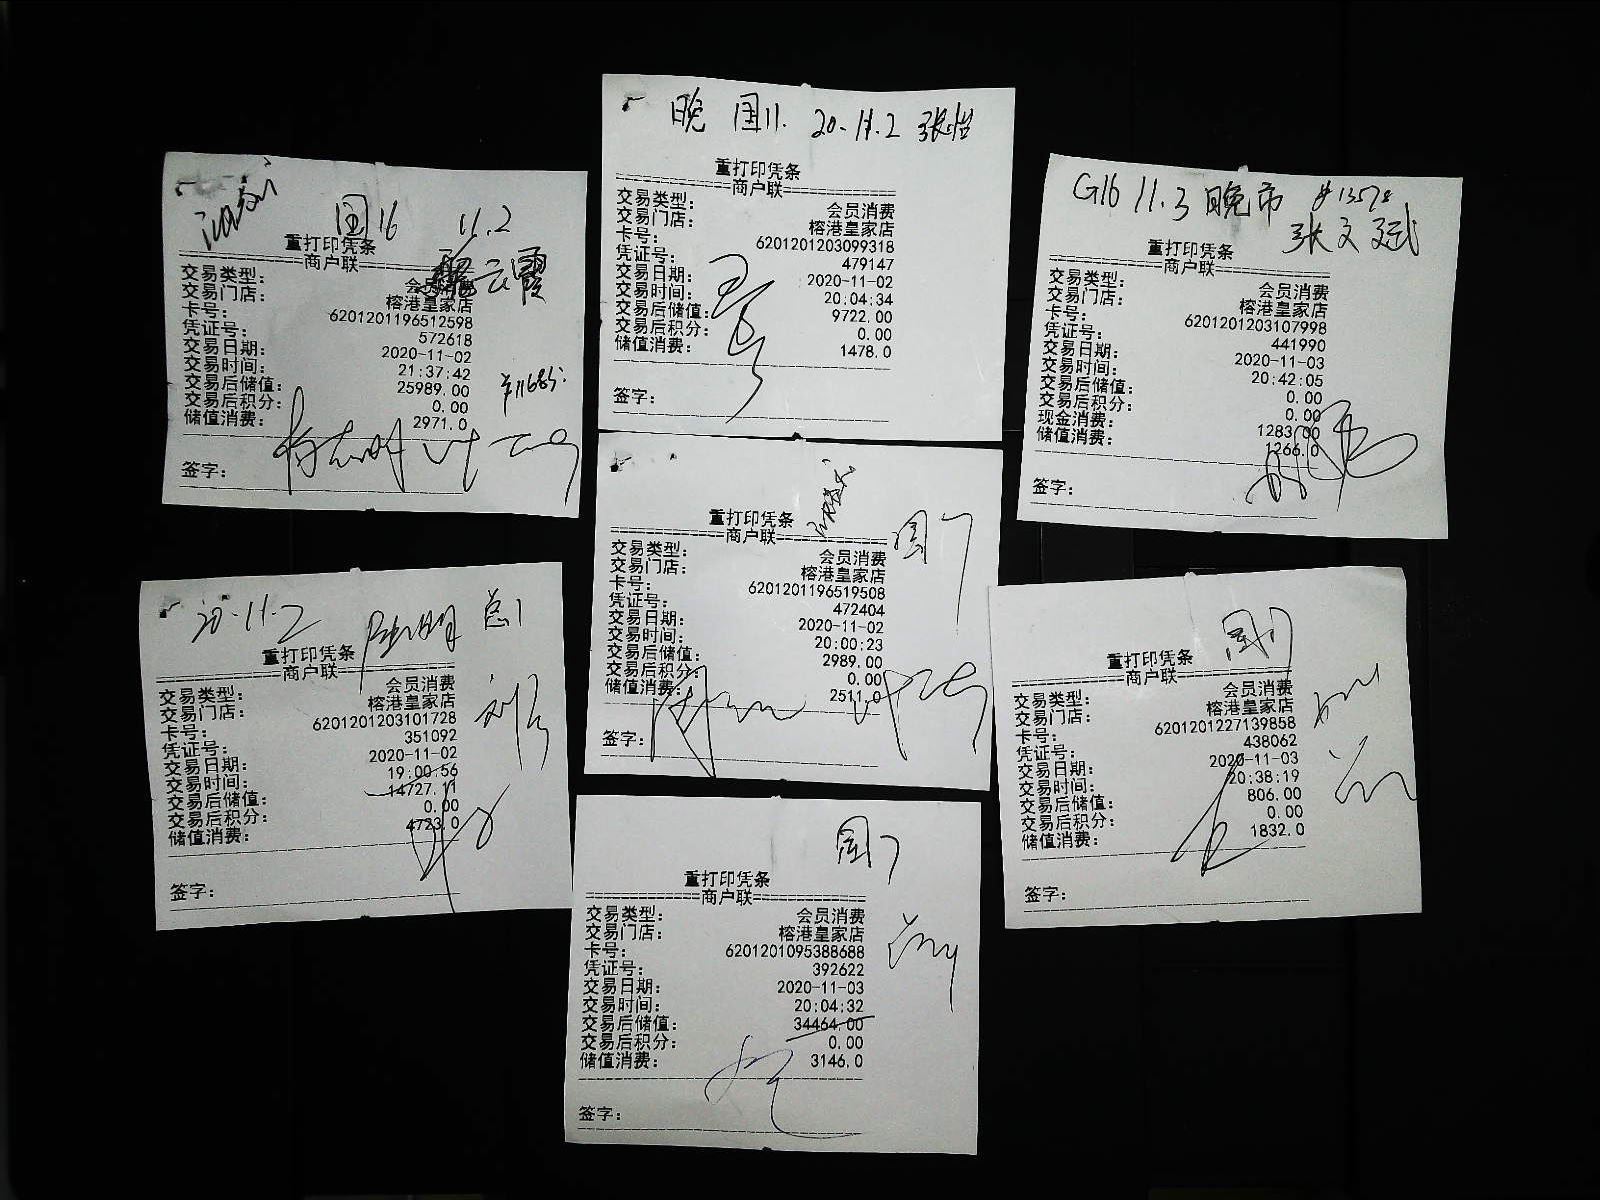 国16 11.2
重打印凭条
商户联
云霞
交易类型： 会员消费
交易门店： 榕港皇家店
卡号： 6201201196512598
凭证号： 572618
交易日期： 2020-11-02
交易时间： 21:37:42
交易后储值： 25989.00
交易后积分： 0.00
储值消费： 2971.0
签字：
晚 国11. 20-11.2 张怡
重打印凭条
商户联
交易类型： 会员消费
交易门店： 榕港皇家店
卡号： 6201201203099318
凭证号： 479147
交易日期： 2020-11-02
交易时间： 20:04:34
交易后储值： 9722.00
交易后积分： 0.00
储值消费： 1478.0
签字：
G16 11.3 晚市 #13578
张文斌
重打印凭条
商户联
交易类型： 会员消费
交易门店： 榕港皇家店
卡号： 6201201203107998
凭证号： 441990
交易日期： 2020-11-03
交易时间： 20:42:05
交易后储值： 0.00
交易后积分： 0.00
现金消费： 1283.00
储值消费： 1266.0
签字：
20-11-2
重打印凭条
商户联
交易类型： 会员消费
交易门店： 榕港皇家店
卡号： 6201201203101728
凭证号： 351092
交易日期： 2020-11-02
交易时间： 19:00:56
交易后储值： 14727.11
交易后积分： 0.00
储值消费： 4723.0
签字：
国7
重打印凭条
商户联
交易类型： 会员消费
交易门店： 榕港皇家店
卡号： 6201201196519508
凭证号： 472404
交易日期： 2020-11-02
交易时间： 20:00:23
交易后储值： 2989.00
交易后积分： 0.00
储值消费： 2511.0
签字：
国7
重打印凭条
商户联
交易类型： 会员消费
交易门店： 榕港皇家店
卡号： 6201201227139858
凭证号： 438062
交易日期： 2020-11-03
交易时间： 20:38:19
交易后储值： 806.00
交易后积分： 0.00
储值消费： 1832.0
签字：
国7
重打印凭条
商户联
交易类型： 会员消费
交易门店： 榕港皇家店
卡号： 6201201095388688
凭证号： 392622
交易日期： 2020-11-03
交易时间： 20:04:32
交易后储值： 34464.00
交易后积分： 0.00
储值消费： 3146.0
签字：